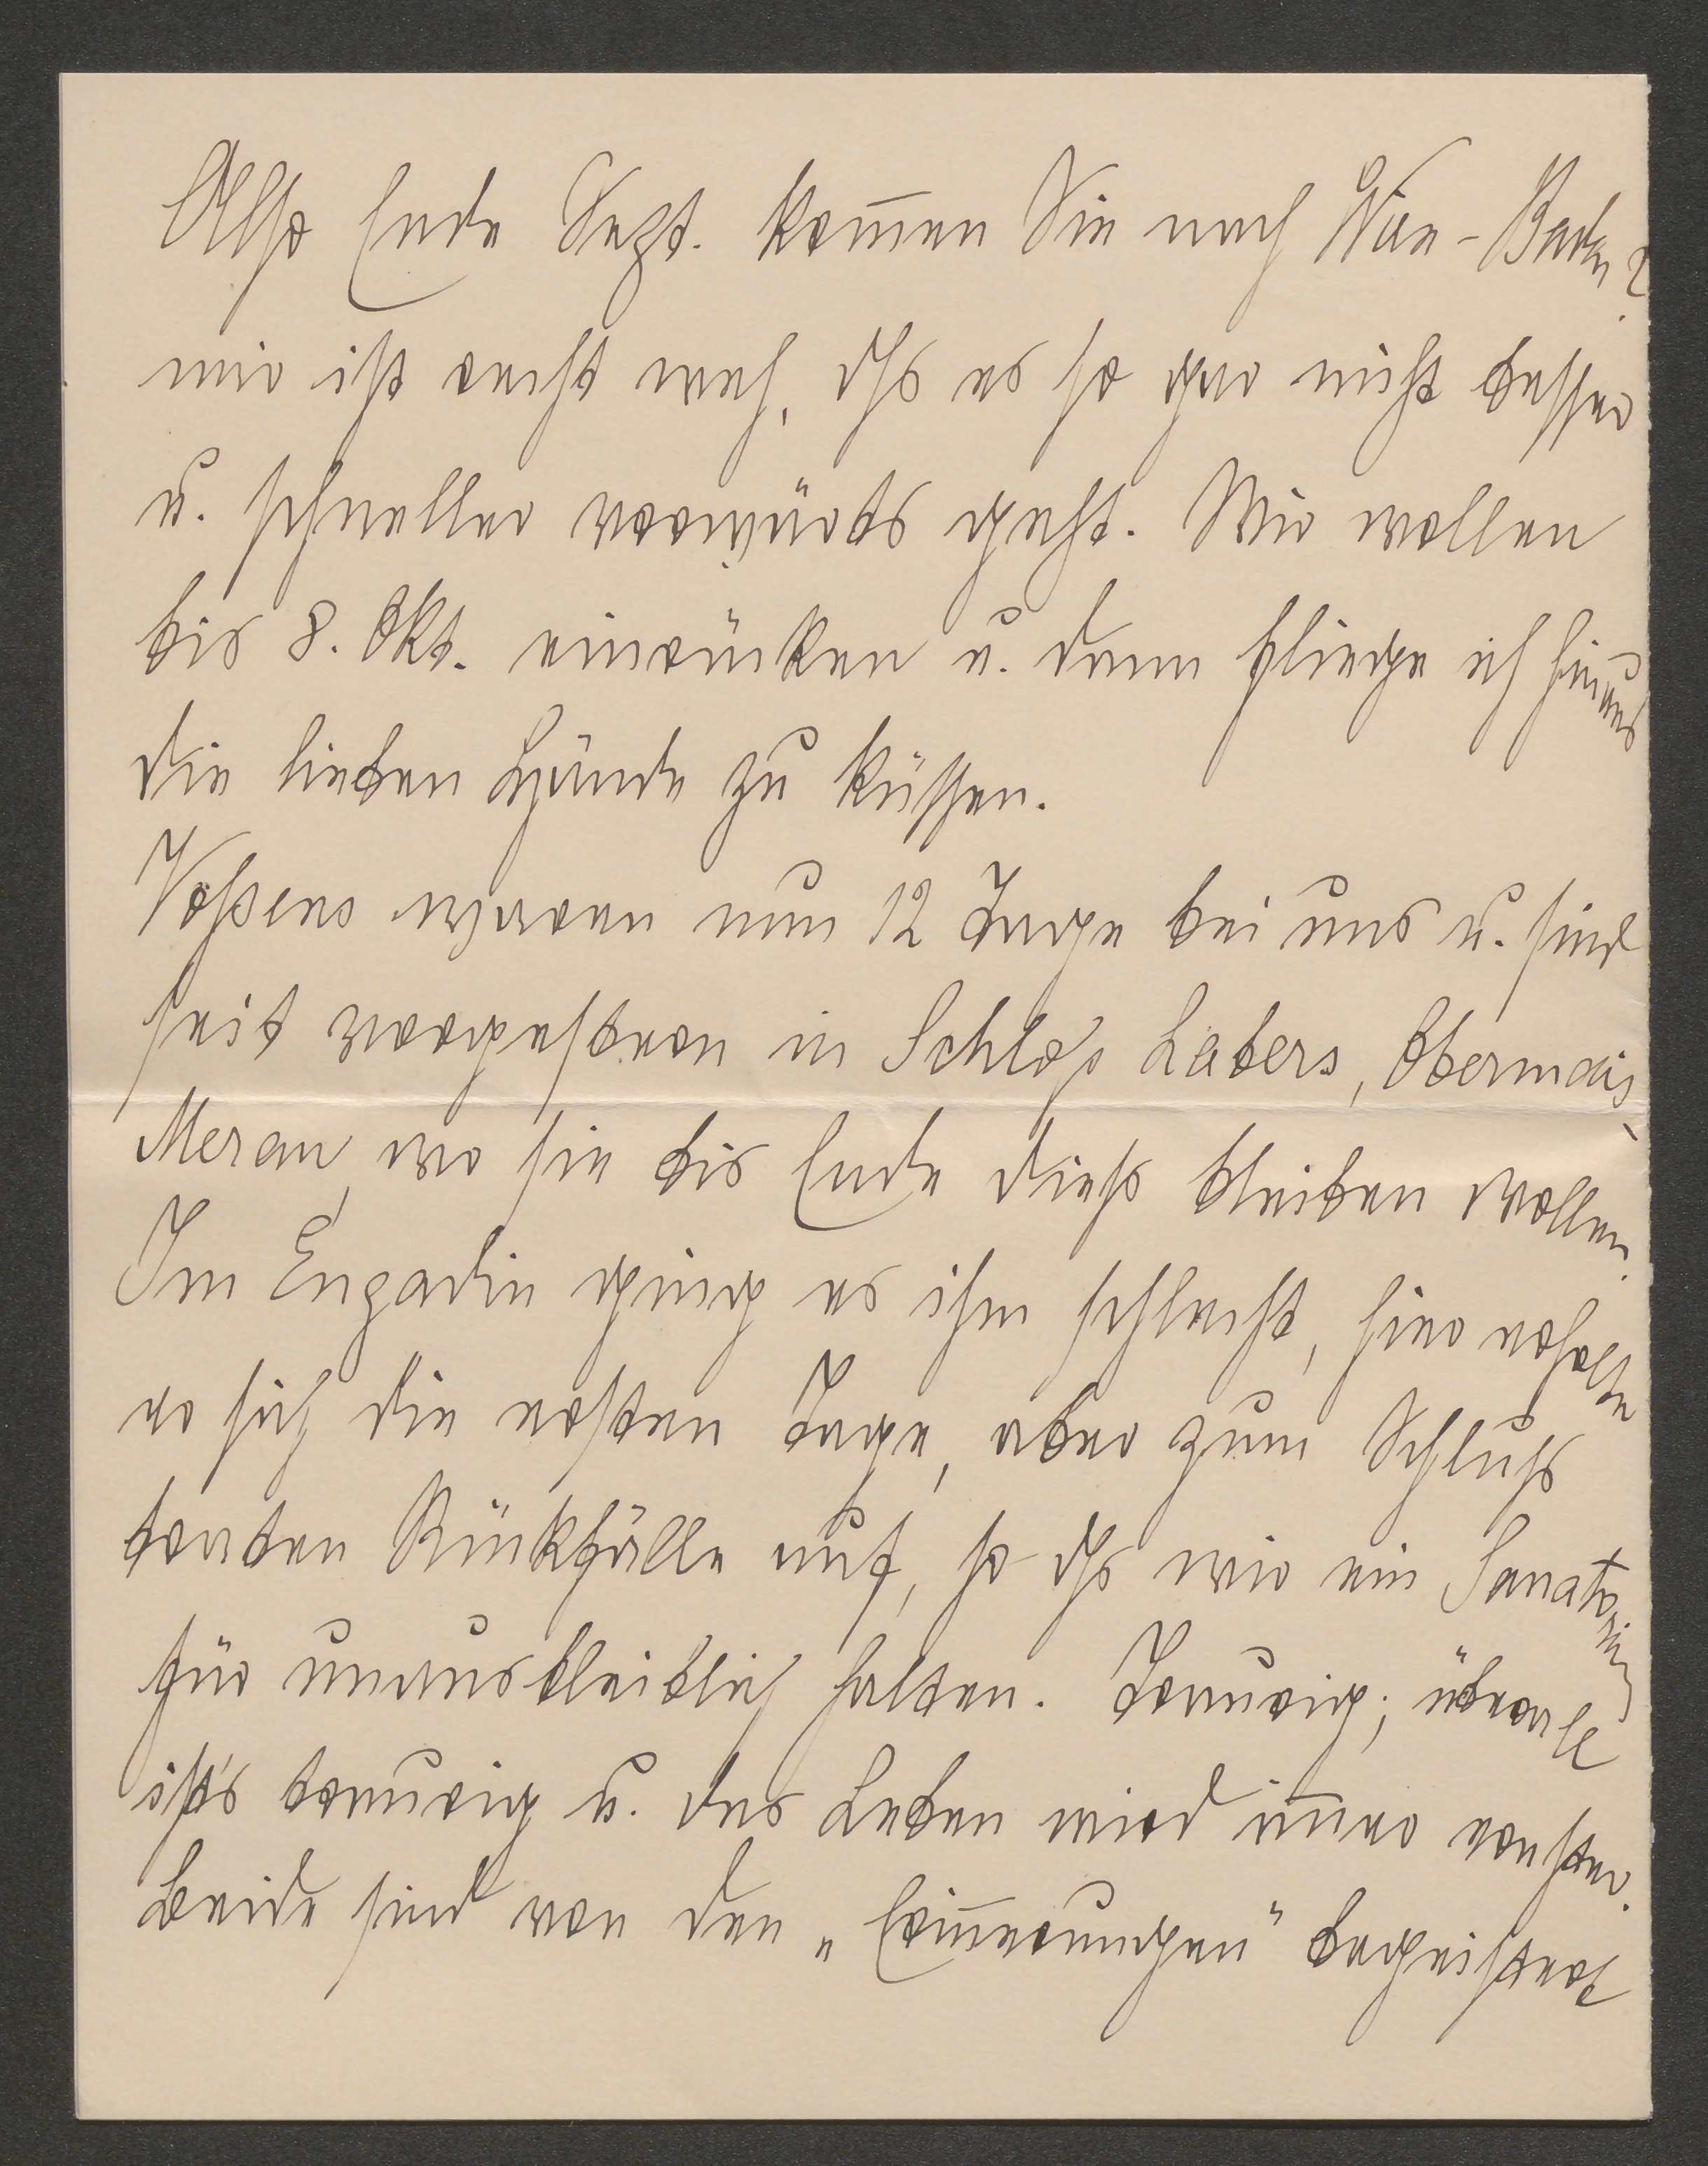 Also Ende Sept. kom̅en Sie nach Wien-Baden?
mir ist recht weh, dſs es so gar nicht besser
u. schneller vorwärts geht. Wir wollen
bis 8. Okt. einrücken u. dann fliege ich hinaus
die lieben Hände zu küssen.
waren nun 12 Tage bei uns u. sind
seit vorgestern in Schloß Labers, Obermais
Meran, wo sie bis Ende dieß bleiben wollen.
Im Engadin ging es ihm schlecht, hier erholte
er sich die ersten Tage, aber zum Schluß
traten Rückfälle auf, so dſs wir ein Sanatorium
für unausbleiblich halten. Traurig; überall
ist's traurig u. das Leben wird im̅er ernster.
Beide sind von den „Erin̅erungen" begeistert